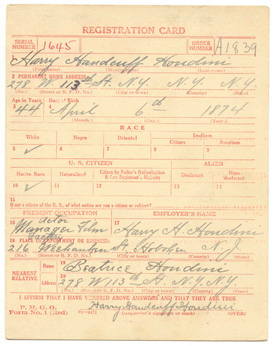 REGISTRATION CARD
SERIAL NUMBER 1645 ORDER NUMBER A1839
Harry Handcuff Houdini
2 PERMANENT HOME ADDRESS:
278 W 113th St. N.Y. N.Y. N.Y.
Age in Years Date of Birth
44 April 6th 1874
RACE
White Negro Oriental Indian
Citizen Noncitizen
5 ✓ 6 7 8 9
U. S. CITIZEN ALIEN
Native Born Naturalized Citizen by Father's Naturalization Before Registrant's Majority
10 ✓ 11 12 13 14
15
If not a citizen of the U. S., of what nation are you a citizen or subject?
PRESENT OCCUPATION EMPLOYER'S NAME
16 Actor 17
Manager Film Harry H. Houdini
18 PLACE OF EMPLOYMENT OR BUSINESS:
216 St Hoboken N.J.
NEAREST RELATIVE
Name 19 Beatrice Houdini
Address 20 278 W 113th St N.Y. N.Y.
I AFFIRM THAT I HAVE VERIFIED ABOVE ANSWERS AND THAT THEY ARE TRUE
P. M. G. O.
Form No. 1 (Red) Harry Handcuff Houdini